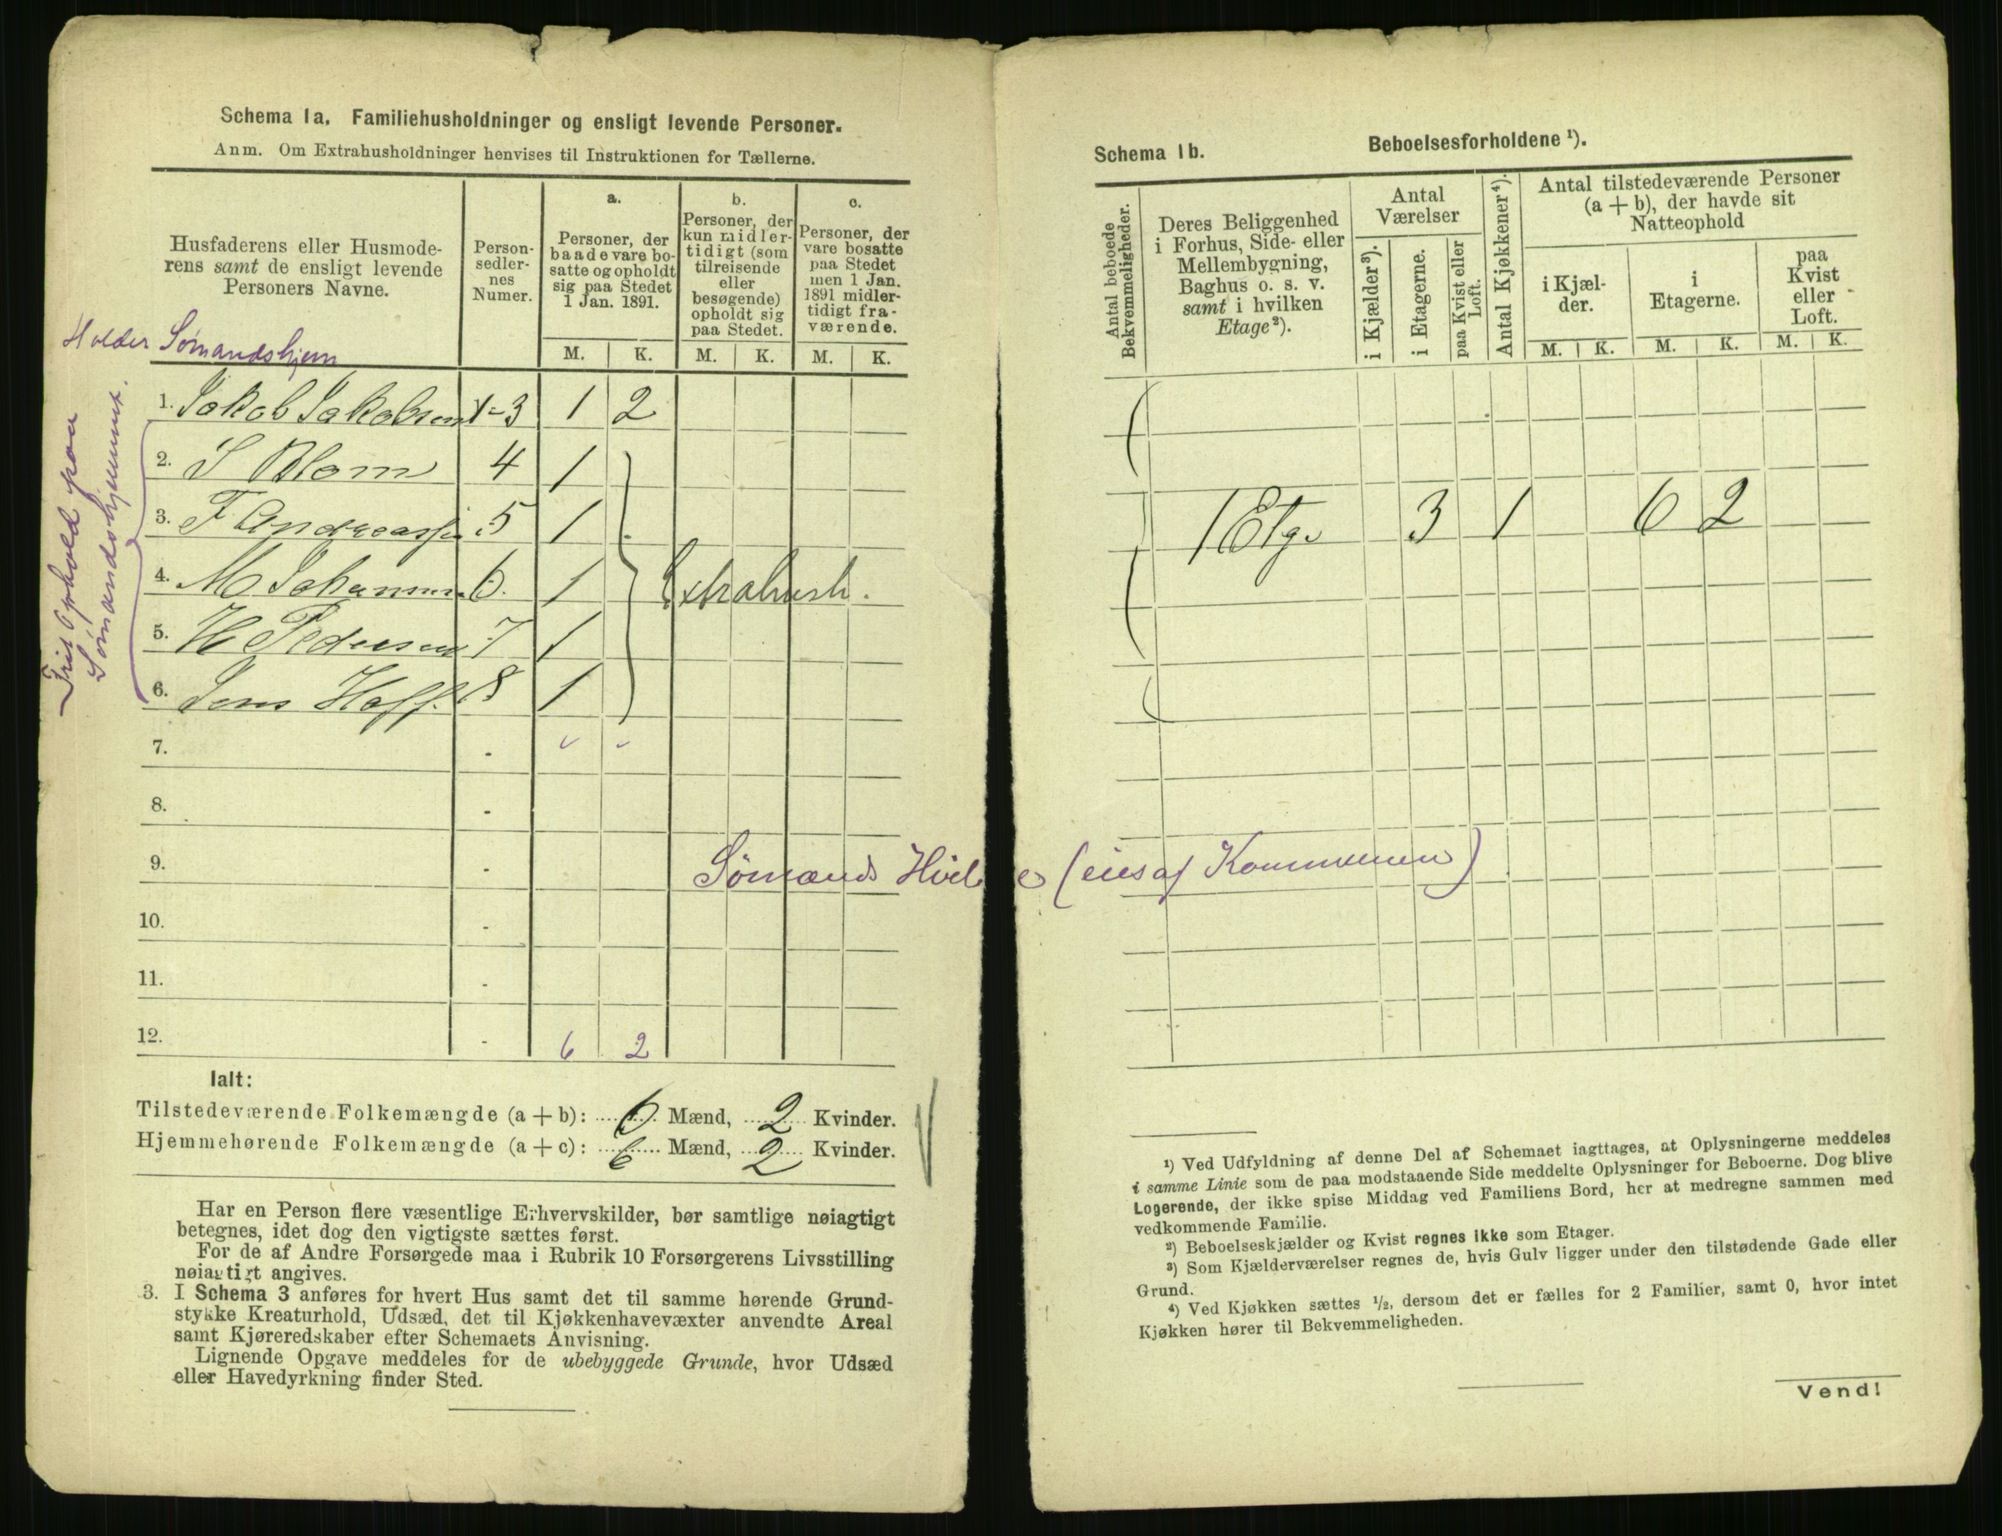 Schema 1a. Familiehusholdninger og ensligt levende Personer.
Anm. Om Extrahusholdninger henvises til Instruktionen for Tællerne.
Husfaderens eller Husmode-
rens samt de ensligt levende
Personers Navne.
Person-
sedler-
nes
Numer.
a.
Personer, der
baade vare bo-
satte og opholdt
sig paa Stedet
1 Jan. 1891.
b.
Personer, der
kun midler-
tidigt (som
tilreisende
eller
besøgende)
opholdt sig
paa Stedet.
c.
Personer, der
vare bosatte
paa Stedet
men 1 Jan.
1891 midler-
tidigt fra-
værende.
M. K. M. K. M. K.
Holder Sømandshjem
1. Jakob Jakobsen 1-3 1 2
2. S Blom 4 1
3. F Andreassen 5 1
4. M Johansen 6. 1 Extrahush.
5. H Pedersen 7 1
6. Jens Hoff. 8 1
Frit Ophold paa
Sømandshjemmet.
7.
8.
9. Sømænds Hvile (eies af Kommunen)
10.
11.
12. 6 2
Ialt:
Tilstedeværende Folkemængde (a + b): 6 Mænd, 2 Kvinder.
Hjemmehørende Folkemængde (a + c): 6 Mænd, 2 Kvinder.
Har en Person flere væsentlige Erhvervskilder, bør samtlige nøiagtigt
betegnes, idet dog den vigtigste sættes først.
For de af Andre Forsørgede maa i Rubrik 10 Forsørgerens Livsstilling
nøiagtigt angives.
3. I Schema 3 anføres for hvert Hus samt det til samme hørende Grund-
stykke Kreaturhold, Udsæd, det til Kjøkkenhavevæxter anvendte Areal
samt Kjøreredskaber efter Schemaets Anvisning.
Lignende Opgave meddeles for de ubebyggede Grunde, hvor Udsæd
eller Havedyrkning finder Sted.
Schema 1b. Beboelsesforholdene ¹).
Antal beboede
Bekvemmeligheder.
Deres Beliggenhed
i Forhus, Side- eller
Mellembygning,
Baghus o. s. v.
samt i hvilken
Etage ²).
Antal
Værelser
i Kjælder ³).
i Etagerne.
paa Kvist eller
Loft.
Antal Kjøkkener ⁴).
Antal tilstedeværende Personer
(a + b), der havde sit
Natteophold
i Kjæl-
der.
i
Etagerne.
paa
Kvist
eller
Loft.
M. K. M. K. M. K.
1 Etge 3 1 6 2
¹) Ved Udfyldning af denne Del af Schemaet iagttages, at Oplysningerne meddeles
i samme Linie som de paa modstaaende Side meddelte Oplysninger for Beboerne. Dog blive
Logerende, der ikke spise Middag ved Familiens Bord, her at medregne sammen med
vedkommende Familie.
²) Beboelseskjælder og Kvist regnes ikke som Etager.
³) Som Kjælderværelser regnes de, hvis Gulv ligger under den tilstødende Gade eller
Grund.
⁴) Ved Kjøkken sættes ½, dersom det er fælles for 2 Familier, samt 0, hvor intet
Kjøkken hører til Bekvemmeligheden.
Vend!